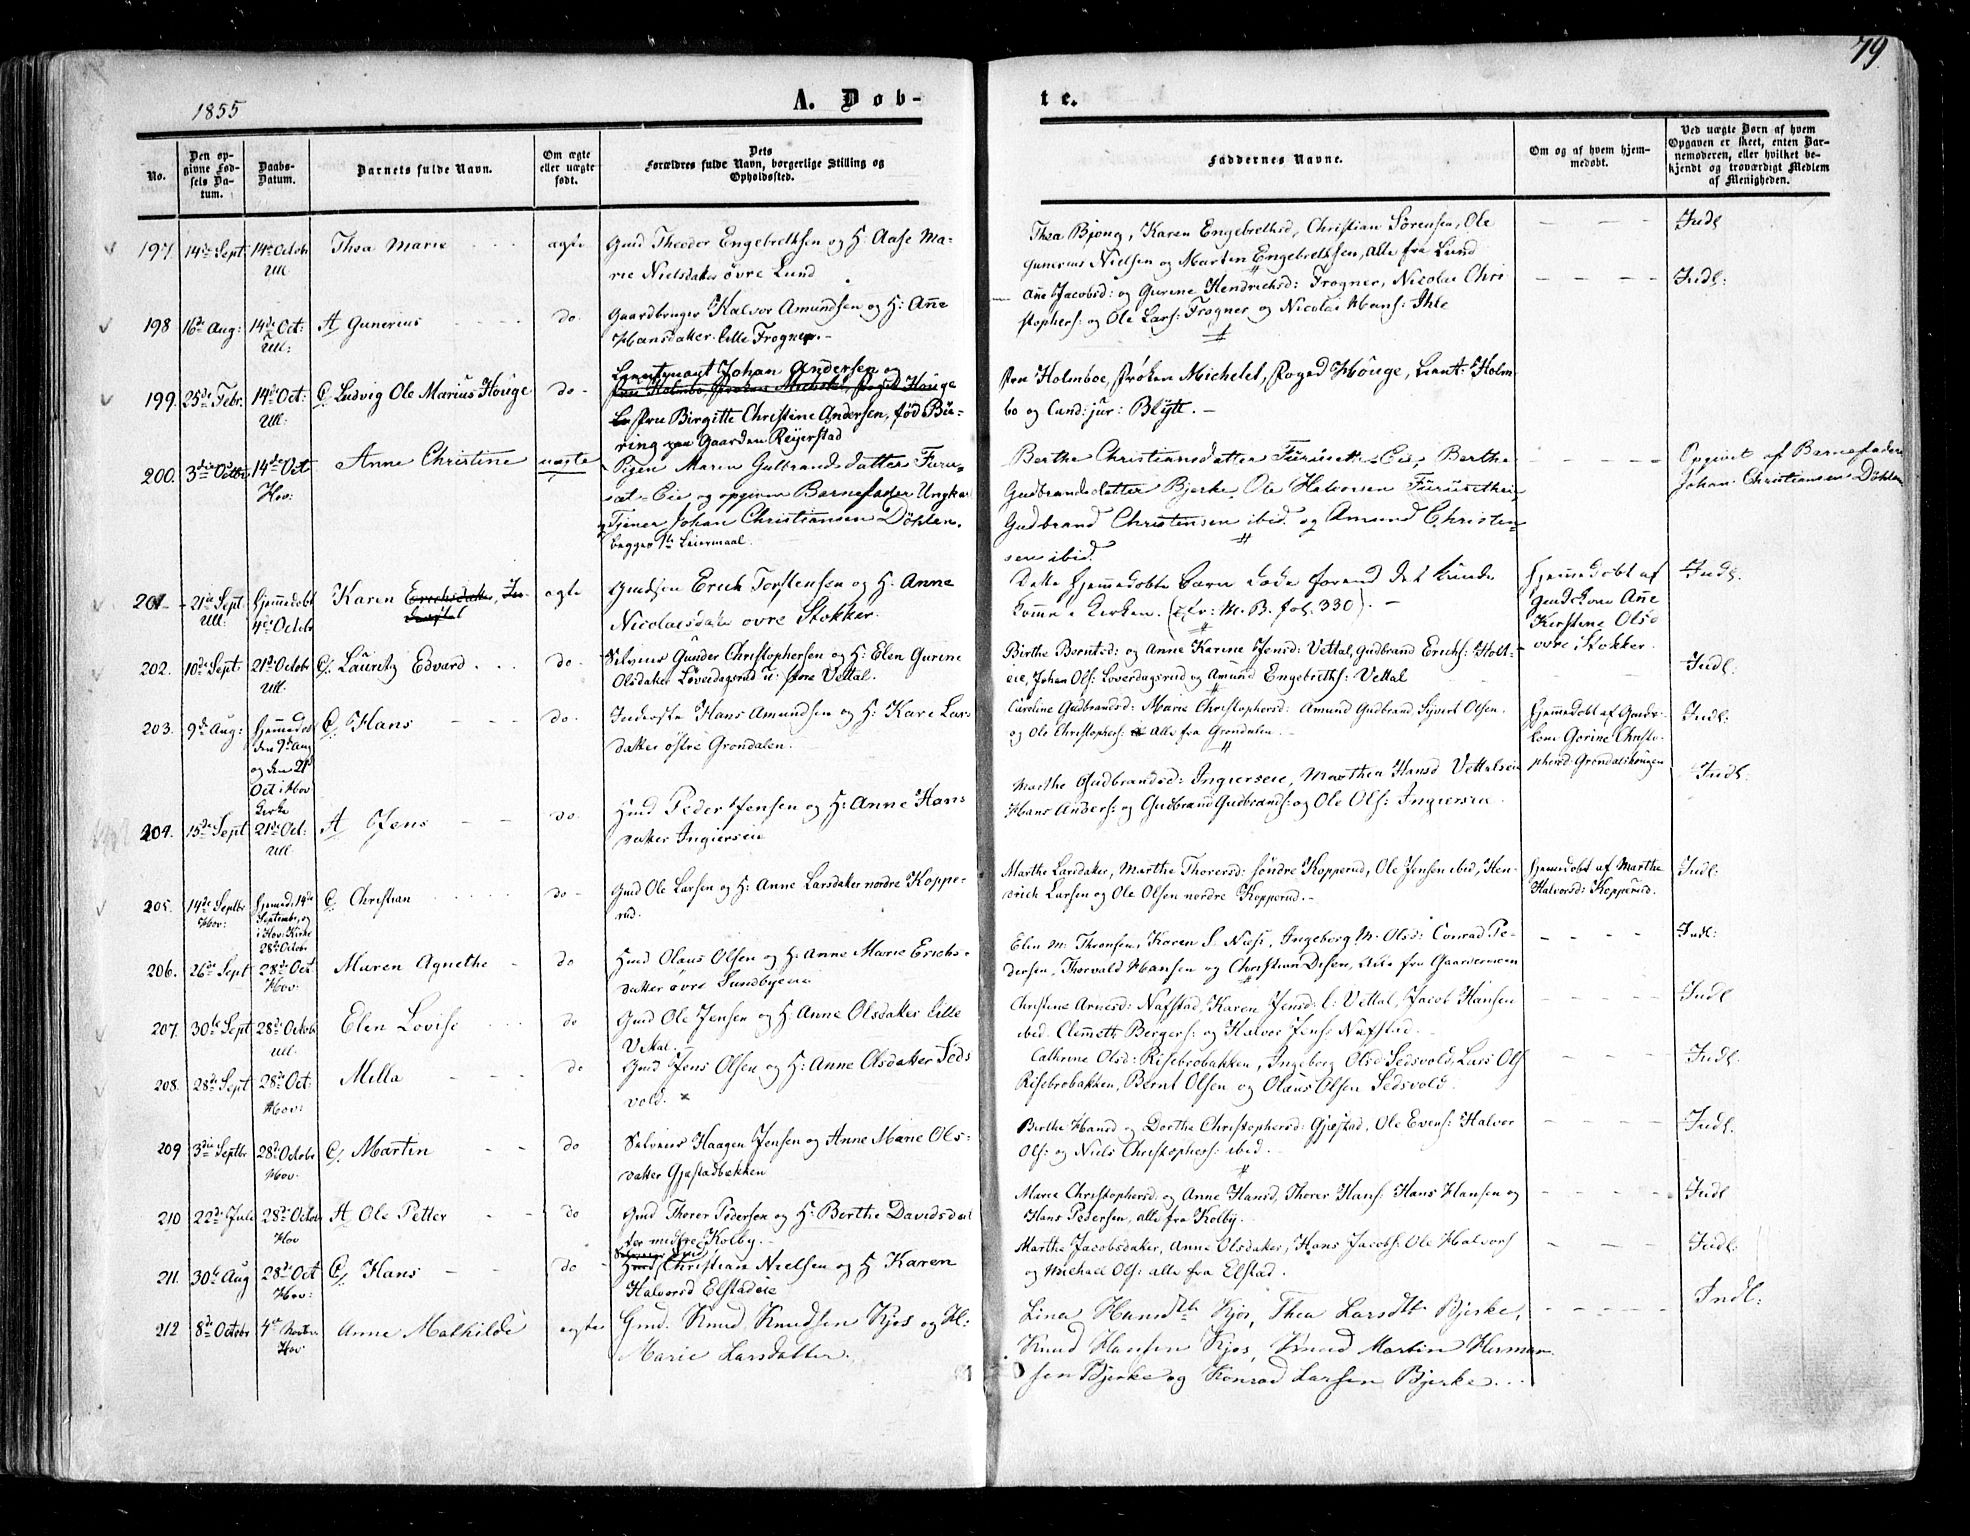 79
1855
A. Døb-
te.
No.
Den op-
givne Fød-
sels Da-
tum.
Daabs-
Datum.
Barnets fulde Navn.
Om ægte
eller uægte
født.
Dets
Forældres fulde Navn, borgerlige Stilling og
Opholdssted.
Faddernes Navne.
Om og af hvem hjem-
medøbt.
Ved uægte Børn af hvem
Opgaven er skeet, enten Bar-
nemoderen, eller hvilket be-
kjendt og troværdigt Medlem
af Menigheden.
197. 14de Sept 14de Octobr Ull Thea Marie ægte
Gmd Theodor Engebrethsen og H. Aase Ma-
rie Nielsdater övre Lund
Thea Bjong, Karen Engebrethsd, Christian Sørensen, Ole
Gunerius Nielsen og Marten Engebrethsen, alle fra Lund
Indl
198 16de Aug: 14de Oct: Ull: A Gunerius do
Gaardbruger Halvor Amundsen og H: Ane
Hansdater Lille Frogner.
Ane Jacobsd: og Gurine Hendrichsd: Frogner, Nicolai Chri
stophers: og Ole Lars: Frogner og Nicolai Hans: Ihle
Indl:
199. 25de Febr. 14de Oct: Ull: C. Ludvig Ole Marius Houge do
Lieutenant Johan Andersen og
Fru Holmbo, Frøken Michelet, Foged Houge
Fru Birgitte Christine Andersen, fød Bü-
ring paa Gaarden Reyerstad
Fru Holmboe, Frøken Michelet, Foged Houge, Lieut: Holm
bo og Cand: jur: Blÿtt.
200. 3die Octbr 14de Oct Hov: Anne Christine uægte
Pigen Maren Gulbrandsdatter Furu-
set-Eie og opgiven Barnefader Ungkarl
og Tjener Johan Christiansen Döhlen.
begges 1te Leiermaal.
Berthe Christiansdatter Furuseth-Eie, Berthe
Gudbrandsdatter Bjerke Ole Halvorsen Furuseth
Gudbrand Christensen ibid. og Amund Christen-
sen ibid.
Opgivet af Barnefaderen
Johan Christiansen Döhlen
201 21de Sept Ull: Hjemmedøbt 4de Octobr Karen Erichsdatter ægte
Gmdsen Erich Torstensen og H. Anne
Nicolaisdater övre Stokker.
Dette hjemmedøbte Barn døde førend det kunde
komme i Kirken. (cfr: M. B. fol. 330).
Hjemmedøbt af
Gmdskone Ane
Kirstine Olsd
övre Stokker.
Indl.
202. 10de Sept. 21de Octobr Ull. C. Lauritz Edvard do
Selveier Gunder Christophersen og H: Elen Gurine
Olsdater Loverdagsrud u: store Vettal.
Birthe Berntsd: og Anne Karine Jensd: Vettal, Gudbrand Erichs: Holt-
eie, Johan Ols: Loverdagsrud og Amund Engebreths: Vettal
Indl:
203. 9de Aug: Hjemmedøbt
den 9de Aug
og den 21de
Oct i Hov
Kirke
C. Hans do
Inderste Hans Amundsen og H: Kari Lars
datter östre Grondalen.
Caroline Gudbrandsd: Marie Christophersd: Amund Gudbrand, Syvert Olsen.
og Ole Christophers: alle fra Grondalen.
Hjemmedøbt af Gaardb-
kone Gorine Christo-
phersd: Grondalshougen
Indl:
204. 15de Sept 21de Oct: Ull. A Jens do
Hmd Peder Jensen og H: Anne Hans
datter Ingierseie
Marthe Gudbrandsd: Ingierseie, Marthea Hansd Vettalseie
Hans Anders: og Gudbrand Gudbrands: og Ole Ols: Ingierseie.
Indl:
205. 14de Septbr Hov: Hjemmed. 14de
Septembr, og
i Hov: Kirke
28de Octobr
C. Christian do
Gmd Ole Larsen og H: Anne Larsdater nordre Koppe-
rud.
Marthe Larsdater, Marthe Thorersd: söndre Kopperud, Ole Jensen ibid, Hen-
drich Larsen og Ole Olsen nordre Kopperud.
Hjemmedøbt af Marthe
Halvorsd: Kopperud.
Indl:
206. 26de Sept 28de Oct Hov. Maren Agnethe do
Hmd Olaus Olsen og H: Anne Marie Erichs-
datter övre Sundbyeie
Elen M: Thronsen, Karen S. Nies, Ingeborg M. Olsd: Conrad Pe-
dersen, Thorvald Hansen og Christian Disen, alle fra Gaardermoen
Indl:
207. 30te Sept 28de Octobr Ull. Elen Lovise do
Gmd Ole Jensen og H: Anne Olsdater Lille
Vettal.
Christine Arnesd: Nafstad, Karen Jensd: l: Vettal, Jacob Hansen
ibid. Clemmeth Bergers: og Halvor Jens: Nafstad.
Indl
208. 28de Sept 28de Oct: Hov: Milla do
Gmd Jens Olsen og H: Anne Olsdater Seds
vold.
Cathrine Olsd: Risebrobakken, Ingeborg Olsd Sedsvold, Lars Ols
Risebrobakken, Bernt Olsen og Olaus Olsen Sedsvold.
Indl:
209 3die Septbr 28de Octobr Hov. C. Martin do
Selveier Haagen Jensen og Anne Marie Ols-
datter Gjestadbækken
Berthe Hansd og Dorthe Christophersd: Gjestad, Ole Evens: Halvor
Ols: og Niels Christophers: ibid.
Indl.
210 22de Juli 28de Octobr Hov A. Ole Petter do
Gmd Thorer Pedersen og H: Berthe Davidsdat
ter midtre Kolby.
Marie Christophersd. og Anne Hansd, Thorer Hans: Hans Hansen og
Hans Pedersen, alle fra Kolby.
Indl
211. 30te Aug 28de Oct Hov: C. Hans do
Hmd Christian Nielsen og H Karen
Halvorsd Elstadeie
Marthe Jacobsdater, Anne Olsdater, Hans Jacobs: Ole Halvors
og Michael Ols: alle fra Elstad.
Indl:
212 8de Octobr 4de Novbr Hov Anne Mathilde ægte
Gmd. Knud Knudsen Kjos og H:
Marie Larsdatter.
Lina Hansdtr Kjos, Thea Larsdtr Bjerke,
Knud Hansen Kjos, Knud Martin Herman
sen Bjerke og Konrad Larsen Bjerke.
Indl: